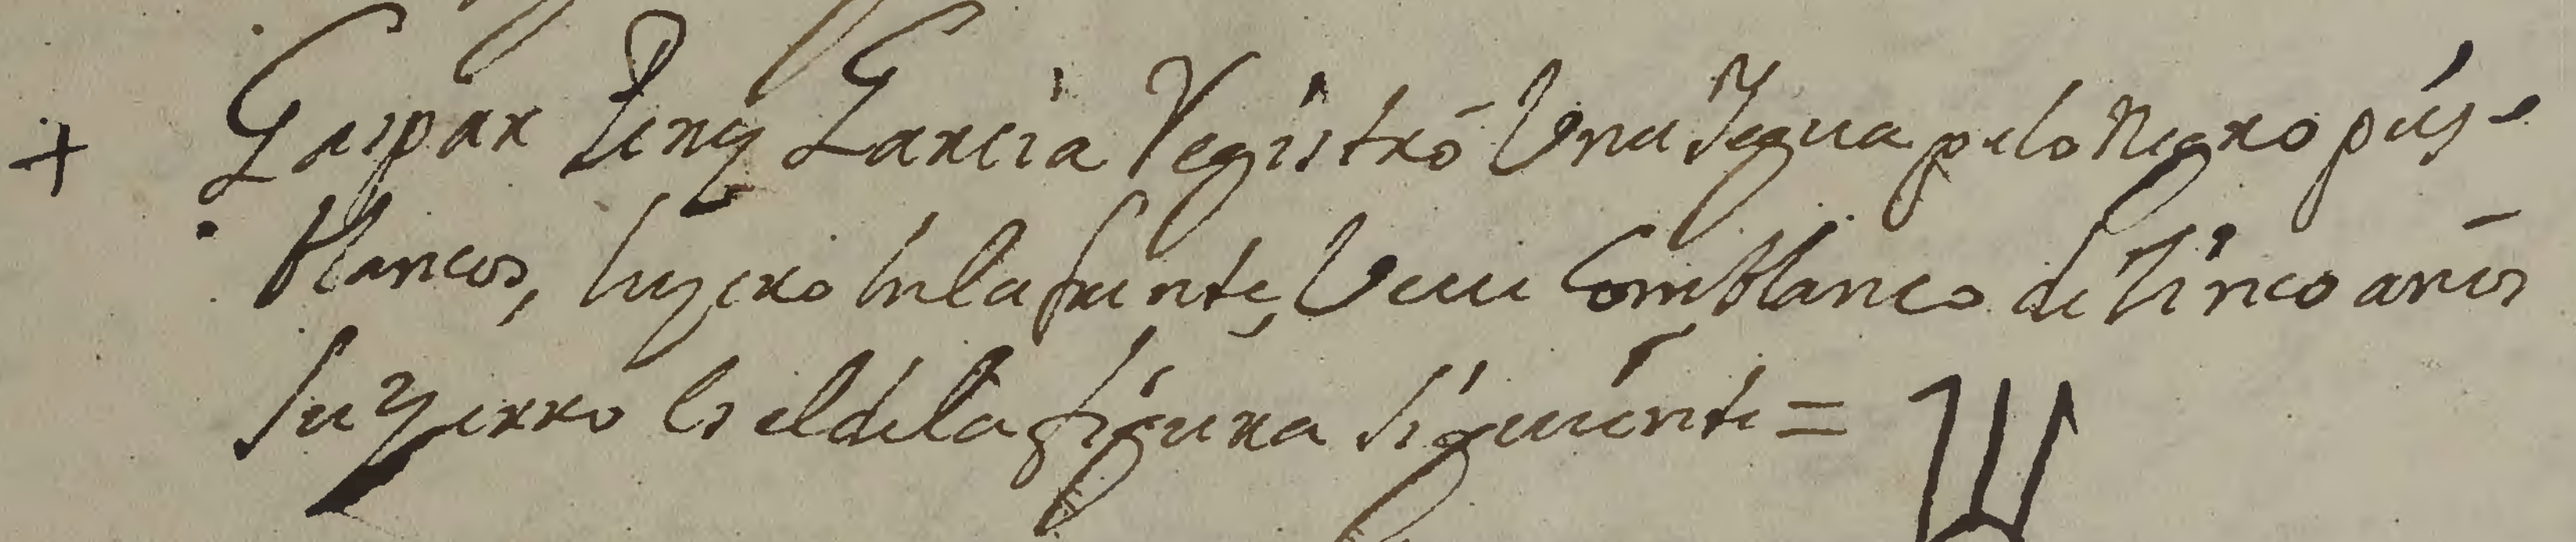 + Gaspar Garcia Registró Una Yegua pelo Negro pies
blancos, luzero En la frente, Veve Com blanco de Sinco años
Su Yerro Es el de la figura Siguiente =